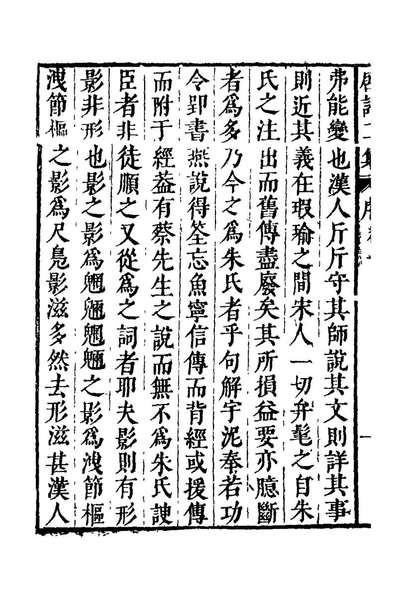 弗能變也漢人斤斤守其師說其文則詳其事
則近其義在瑕瑜之間宋人一切弁髦之自朱
氏之注出而舊傳盡廢矣其所損益要亦臆斷
者爲多乃今之爲朱氏者乎句解字泥奉若功
令郢書燕說得筌忘魚寧信傳而背經或援傳
而附于經葢有蔡先生之說而無不爲朱氏諛
臣者非徒順之又從爲之詞者耶夫影則有形
影非形也影之影爲魍魎魍魎之影爲洩節樞
洩節樞之影爲尺鳧影滋多然去形滋甚漢人